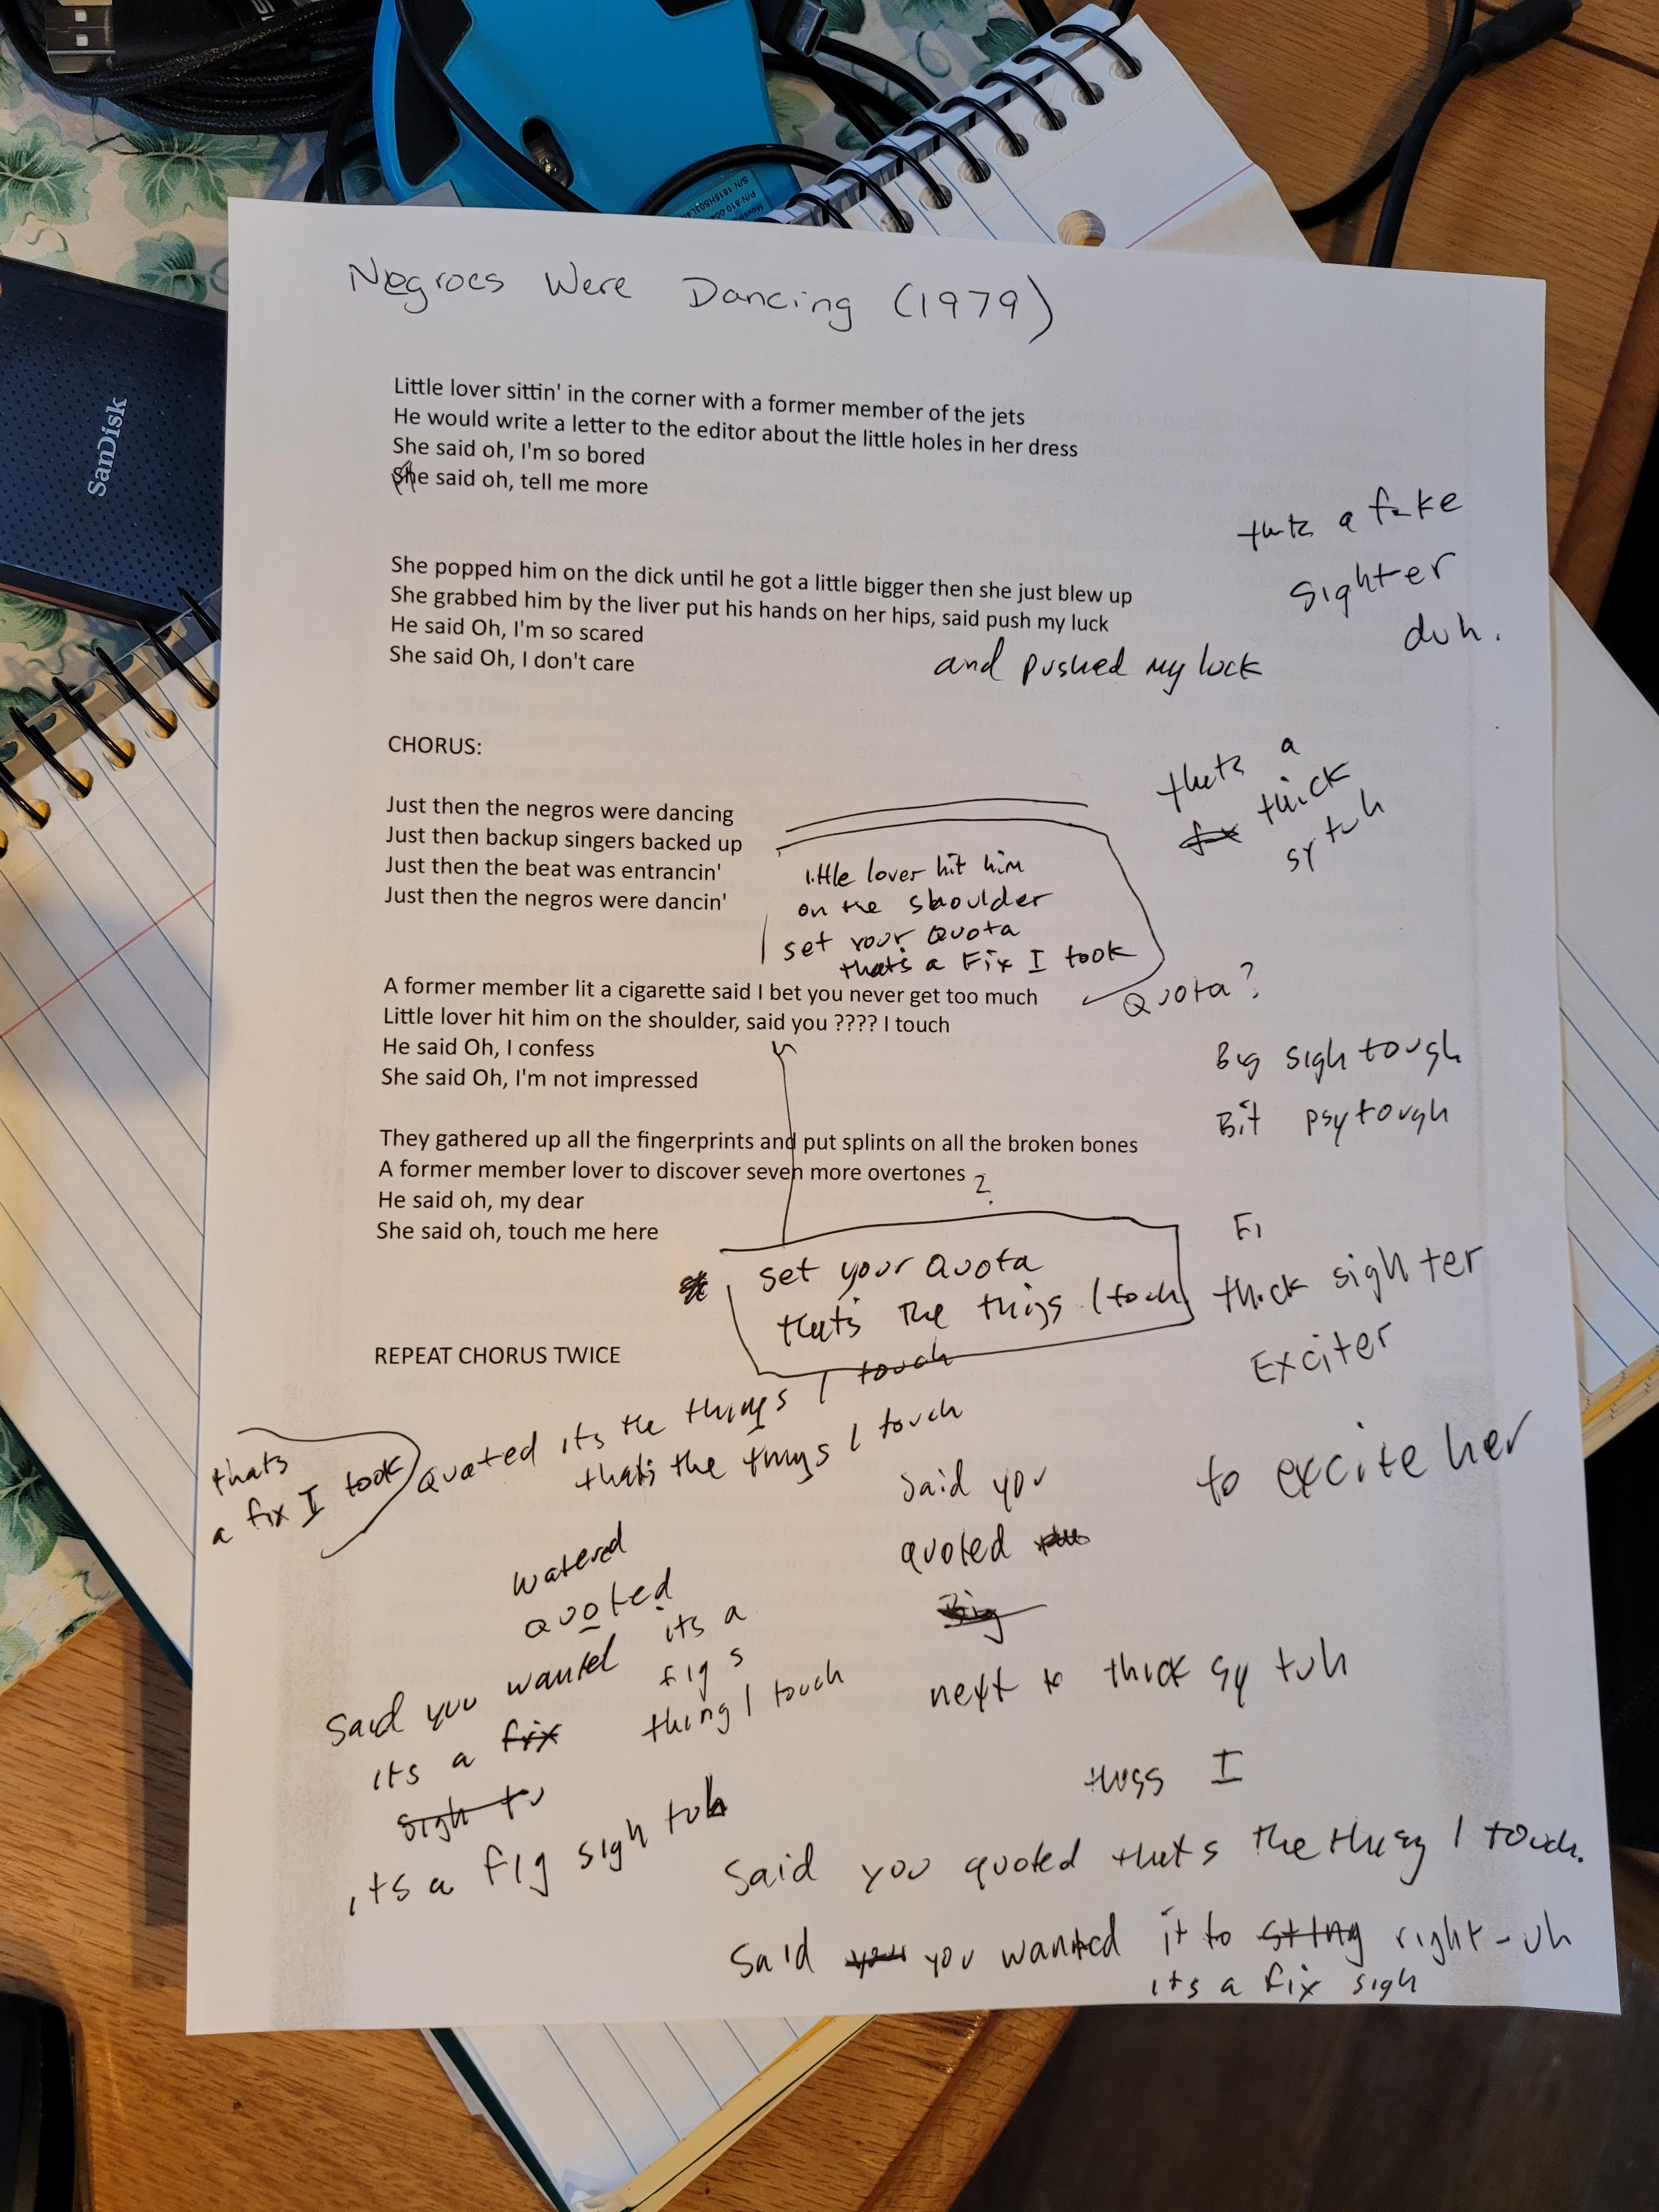 SanDisk
Negroes Were Dancing (1979)
Little lover sittin' in the corner with a former member of the jets
He would write a letter to the editor about the little holes in her dress
She said oh, I'm so bored
She said oh, tell me more
thats a fake
sighter
duh.
She popped him on the dick until he got a little bigger then she just blew up
She grabbed him by the liver put his hands on her hips, said push my luck
He said Oh, I'm so scared
She said Oh, I don't care
and pushed my luck
CHORUS:
thats a
fix thick
sy tuh
Just then the negros were dancing
Just then backup singers backed up
Just then the beat was entrancin'
Just then the negros were dancin'
little lover hit him
on the shoulder
set your Quota
thats a Fix I took
Quota?
A former member lit a cigarette said I bet you never get too much
Little lover hit him on the shoulder, said you ???? I touch
He said Oh, I confess
She said Oh, I'm not impressed
Big sigh tough
Bit psy tough
They gathered up all the fingerprints and put splints on all the broken bones
A former member lover to discover seven more overtones
?
He said oh, my dear
She said oh, touch me here
set your Quota
thats the things I touch
Fi
thick sighter
Exciter
to excite her
REPEAT CHORUS TWICE
thats
a fix I took
Quoted its the things I touch
thats the things I touch
said you
quoted
Big
next to thick sy tuh
watered
Quoted
said you wanted its a
figs
its a fix thing I touch
sigh tu
its a fig sigh tuh
things I
said you quoted thats the thing I touch.
said you you wanted it to sting right-uh
its a fix sigh